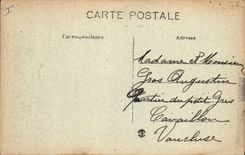 CARTE POSTALE
Correspondance
Adresse
Madame & Monsieur
Gros Augustin
Quartier du petit Gres
Cavaillon
Vaucluse